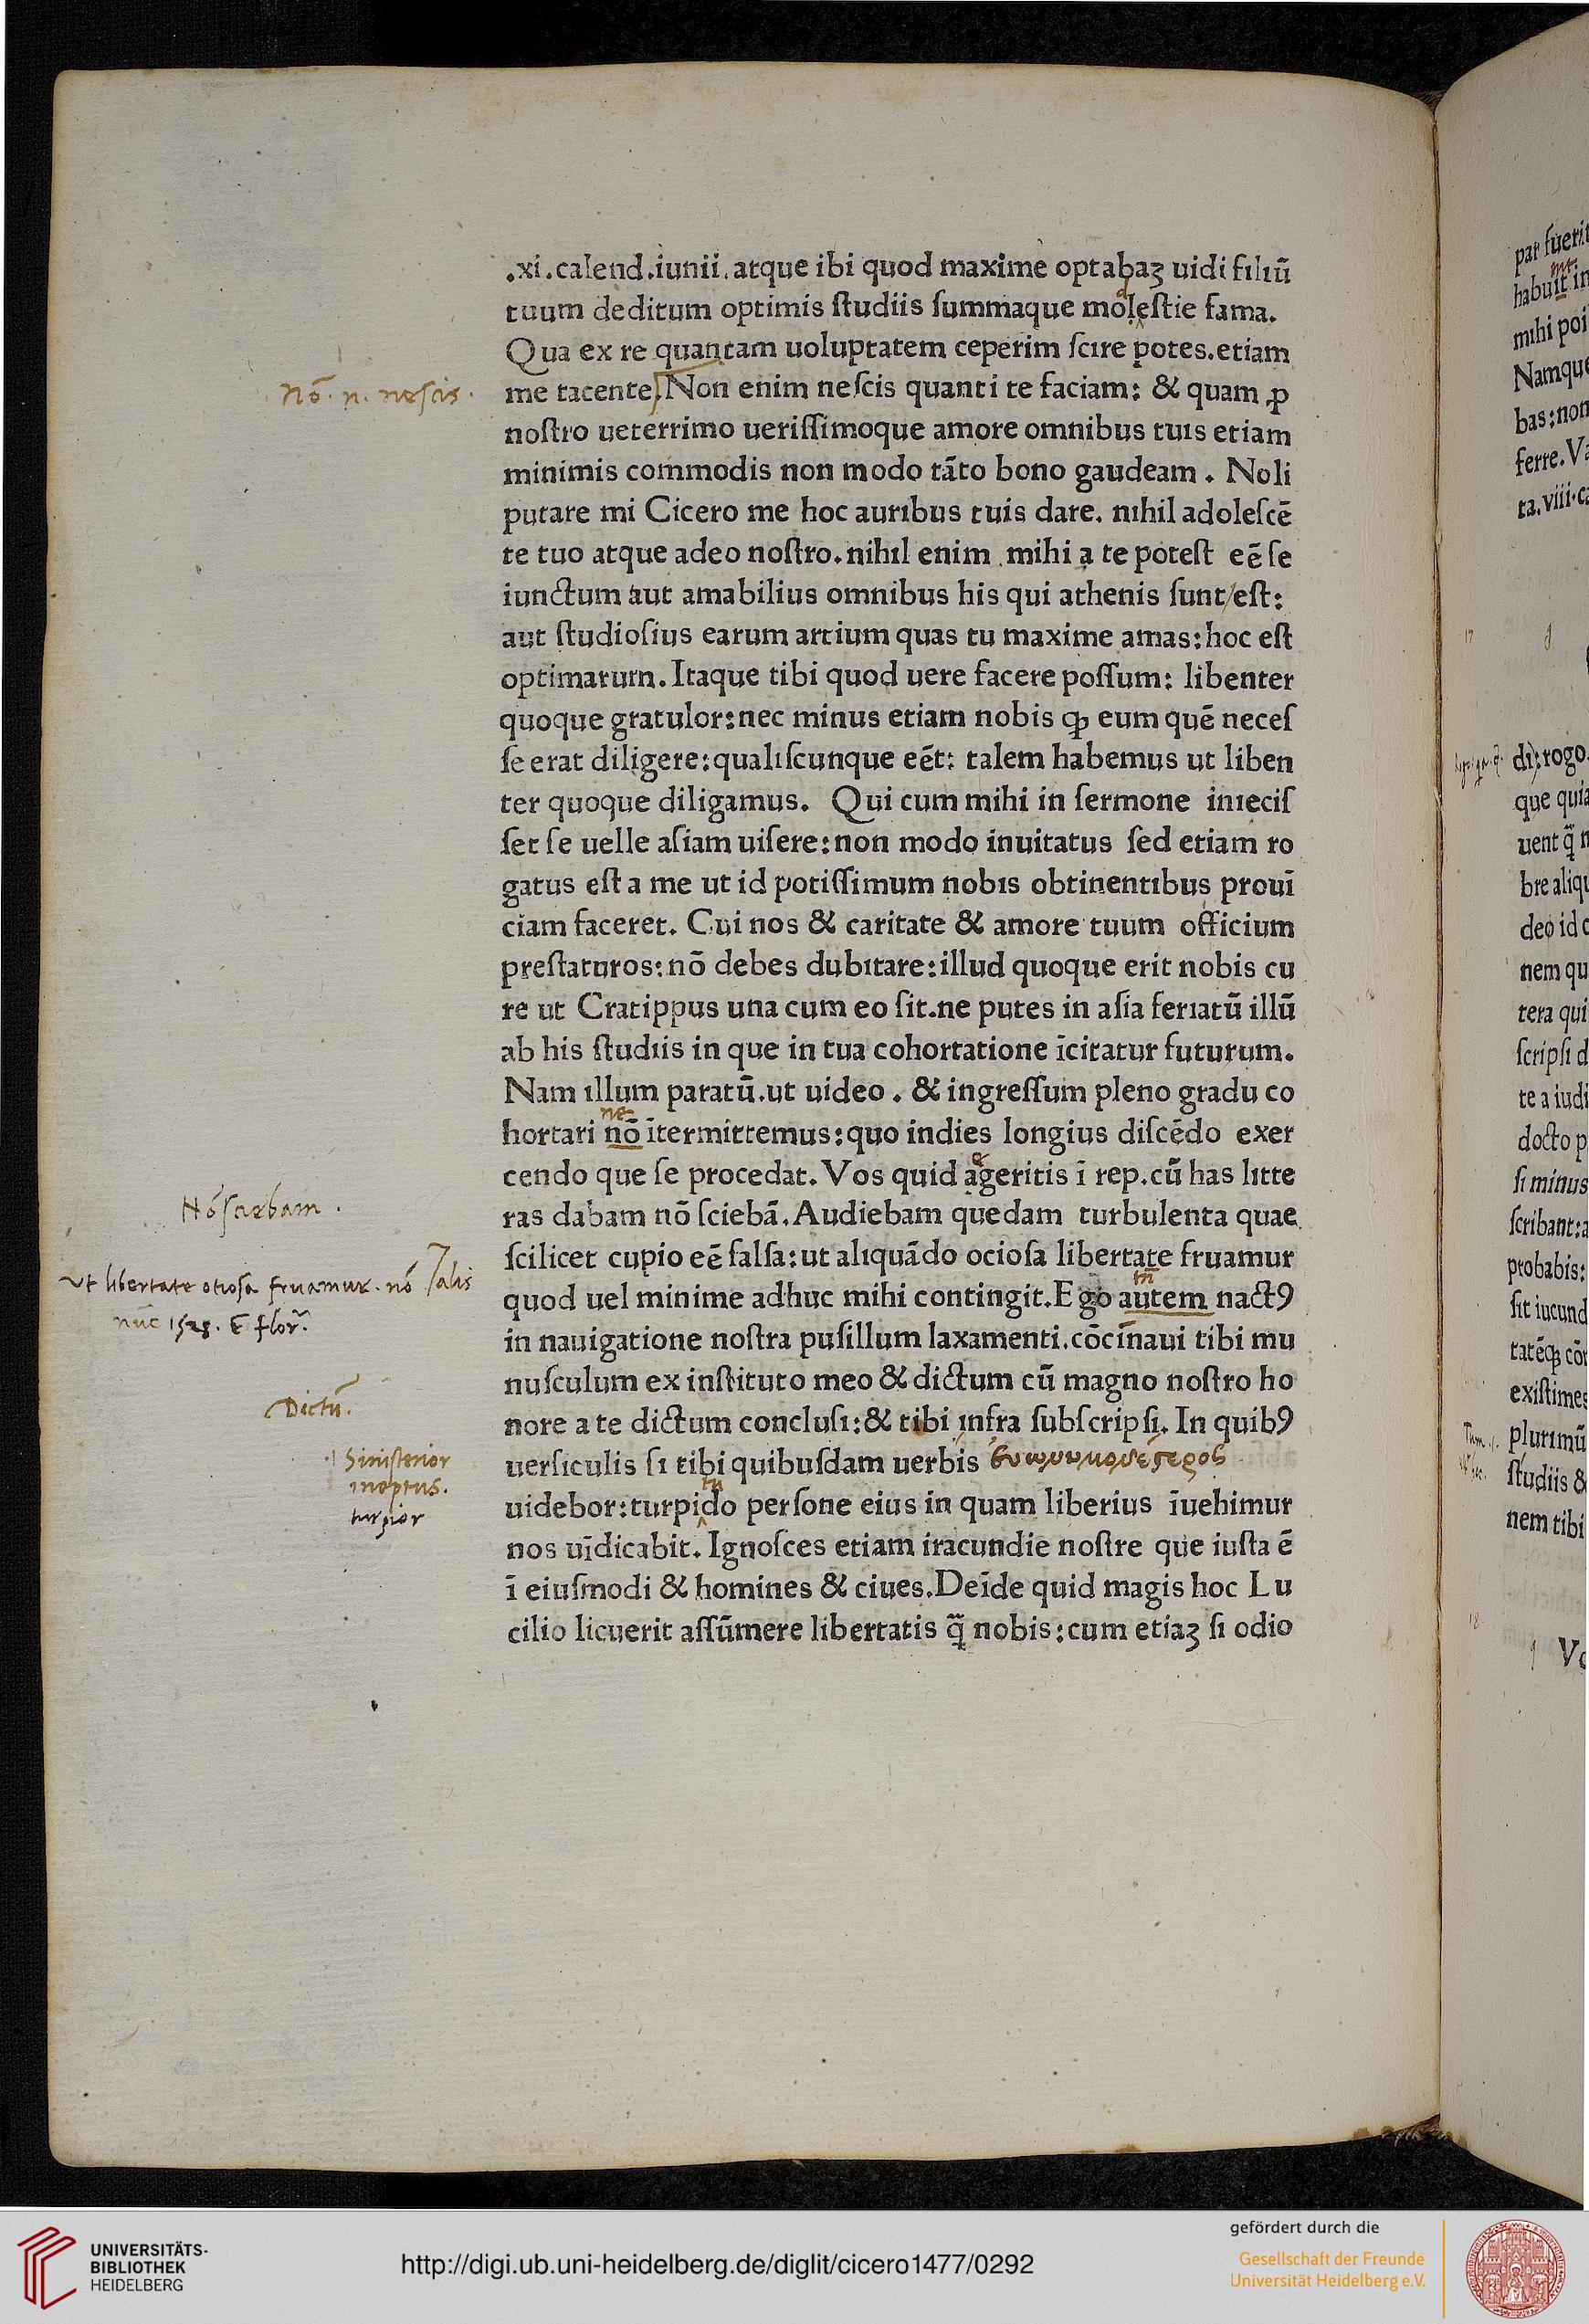 .xi.calend.iunii.atque ibi quod maxime optabaꝫ uidi filiū
tuum deditum optimis ſtudiis ſummaque moleſtie fama.
Qua ex re quantam uoluptatem ceperim ſcire potes.etiam
Nō. n. neſcis.
me tacente.Non enim neſcis quanti te faciam: & quam ꝓ
noſtro ueterrimo ueriſſimoque amore omnibus tuis etiam
minimis commodis non modo tāto bono gaudeam . Noli
putare mi Cicero me hoc auribus tuis dare. nihil adoleſcē
te tuo atque adeo noſtro.nihil enim mihi a te poteſt eē ſe
iunctum aut amabilius omnibus his qui athenis ſunt/eſt:
aut ſtudioſius earum artium quas tu maxime amas:hoc eſt
optimarum.Itaque tibi quod uere facere poſſum: libenter
quoque gratulor:nec minus etiam nobis ꝙ eum quē neceſ
ſe erat diligere:qualiſcunque eēt: talem habemus ut liben
ter quoque diligamus. Qui cum mihi in ſermone inieciſ
ſet ſe uelle aſiam uiſere:non modo inuitatus ſed etiam ro
gatus eſt a me ut id potiſſimum nobis obtinentibus prouī
ciam faceret. Cui nos & caritate & amore tuum officium
preſtaturos:nō debes dubitare:illud quoque erit nobis cu
re ut Cratippus una cum eo ſit.ne putes in aſia feriatū illū
ab his ſtudiis in que in tua cohortatione īcitatur futurum.
Nam illum paratū.ut uideo . & ingreſſum pleno gradu co
ne
hortari nō ītermittemus:quo indies longius diſcēdo exer
cendo que ſe procedat. Vos quid ageritis ī rep.cū has litte
Nō ſciebam .
ras dabam nō ſciebā.Audiebam quedam turbulenta quae
ſcilicet cupio eē falſa:ut aliquādo ocioſa libertate fruamur
Vt libertate otioſa fruamur. nō
nūc 1528.
quod uel minime adhuc mihi contingit.Ego autem nactꝰ
in nauigatione noſtra puſillum laxamenti.cōcīnaui tibi mu
nuſculum ex inſtituto meo & dictum cū magno noſtro ho
Dictū.
nore a te dictum concluſi:& tibi infra ſubſcripſi. In quibꝰ
Siniſterior
ineptus.
turpior
uerſiculis ſi tibi quibuſdam uerbis
uidebor:turpido perſone eius in quam liberius īuehimur
nos uīdicabit. Ignoſces etiam iracundie noſtre que iuſta ē
ī eiuſmodi & homines & ciues.Deīde quid magis hoc Lu
cilio licuerit aſſūmere libertatis q̄ nobis:cum etiaꝫ ſi odio
par fuerit
habuit in
mihi poi
Namque
bas:non
ferre.Va
ta.viii.ca
rogo.
que quia
uent q̄ n
bre aliqu
deo id
nem qu
tera qui
ſcripſi d
te a iudi
docto p
ſi minus
ſcribant:a
probabis:
ſit iucund
exiſtimes
plurimū
ſtudiis &
nem tibi
UNIVERSITÄTS-
BIBLIOTHEK
HEIDELBERG
http://digi.ub.uni-heidelberg.de/diglit/cicero1477/0292
gefördert durch die
Gesellschaft der Freunde
Universität Heidelberg e.V.